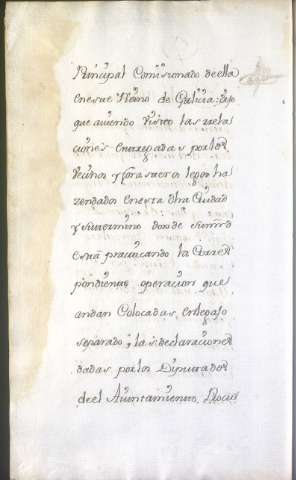 Principal Comisionado de ella
en este Reino de Galicia; dijo
que aviendo visto las rela
ciones entregadas por los
vecinos y forasteros legos ha
zendados en esta dha Ciudad
y su termino donde
esta practicando la Corres
pondiente operacion que
andan Colocadas, en legajo
separado, y las declaraciones
dadas por los Diputados
de el Aiuntamiento,